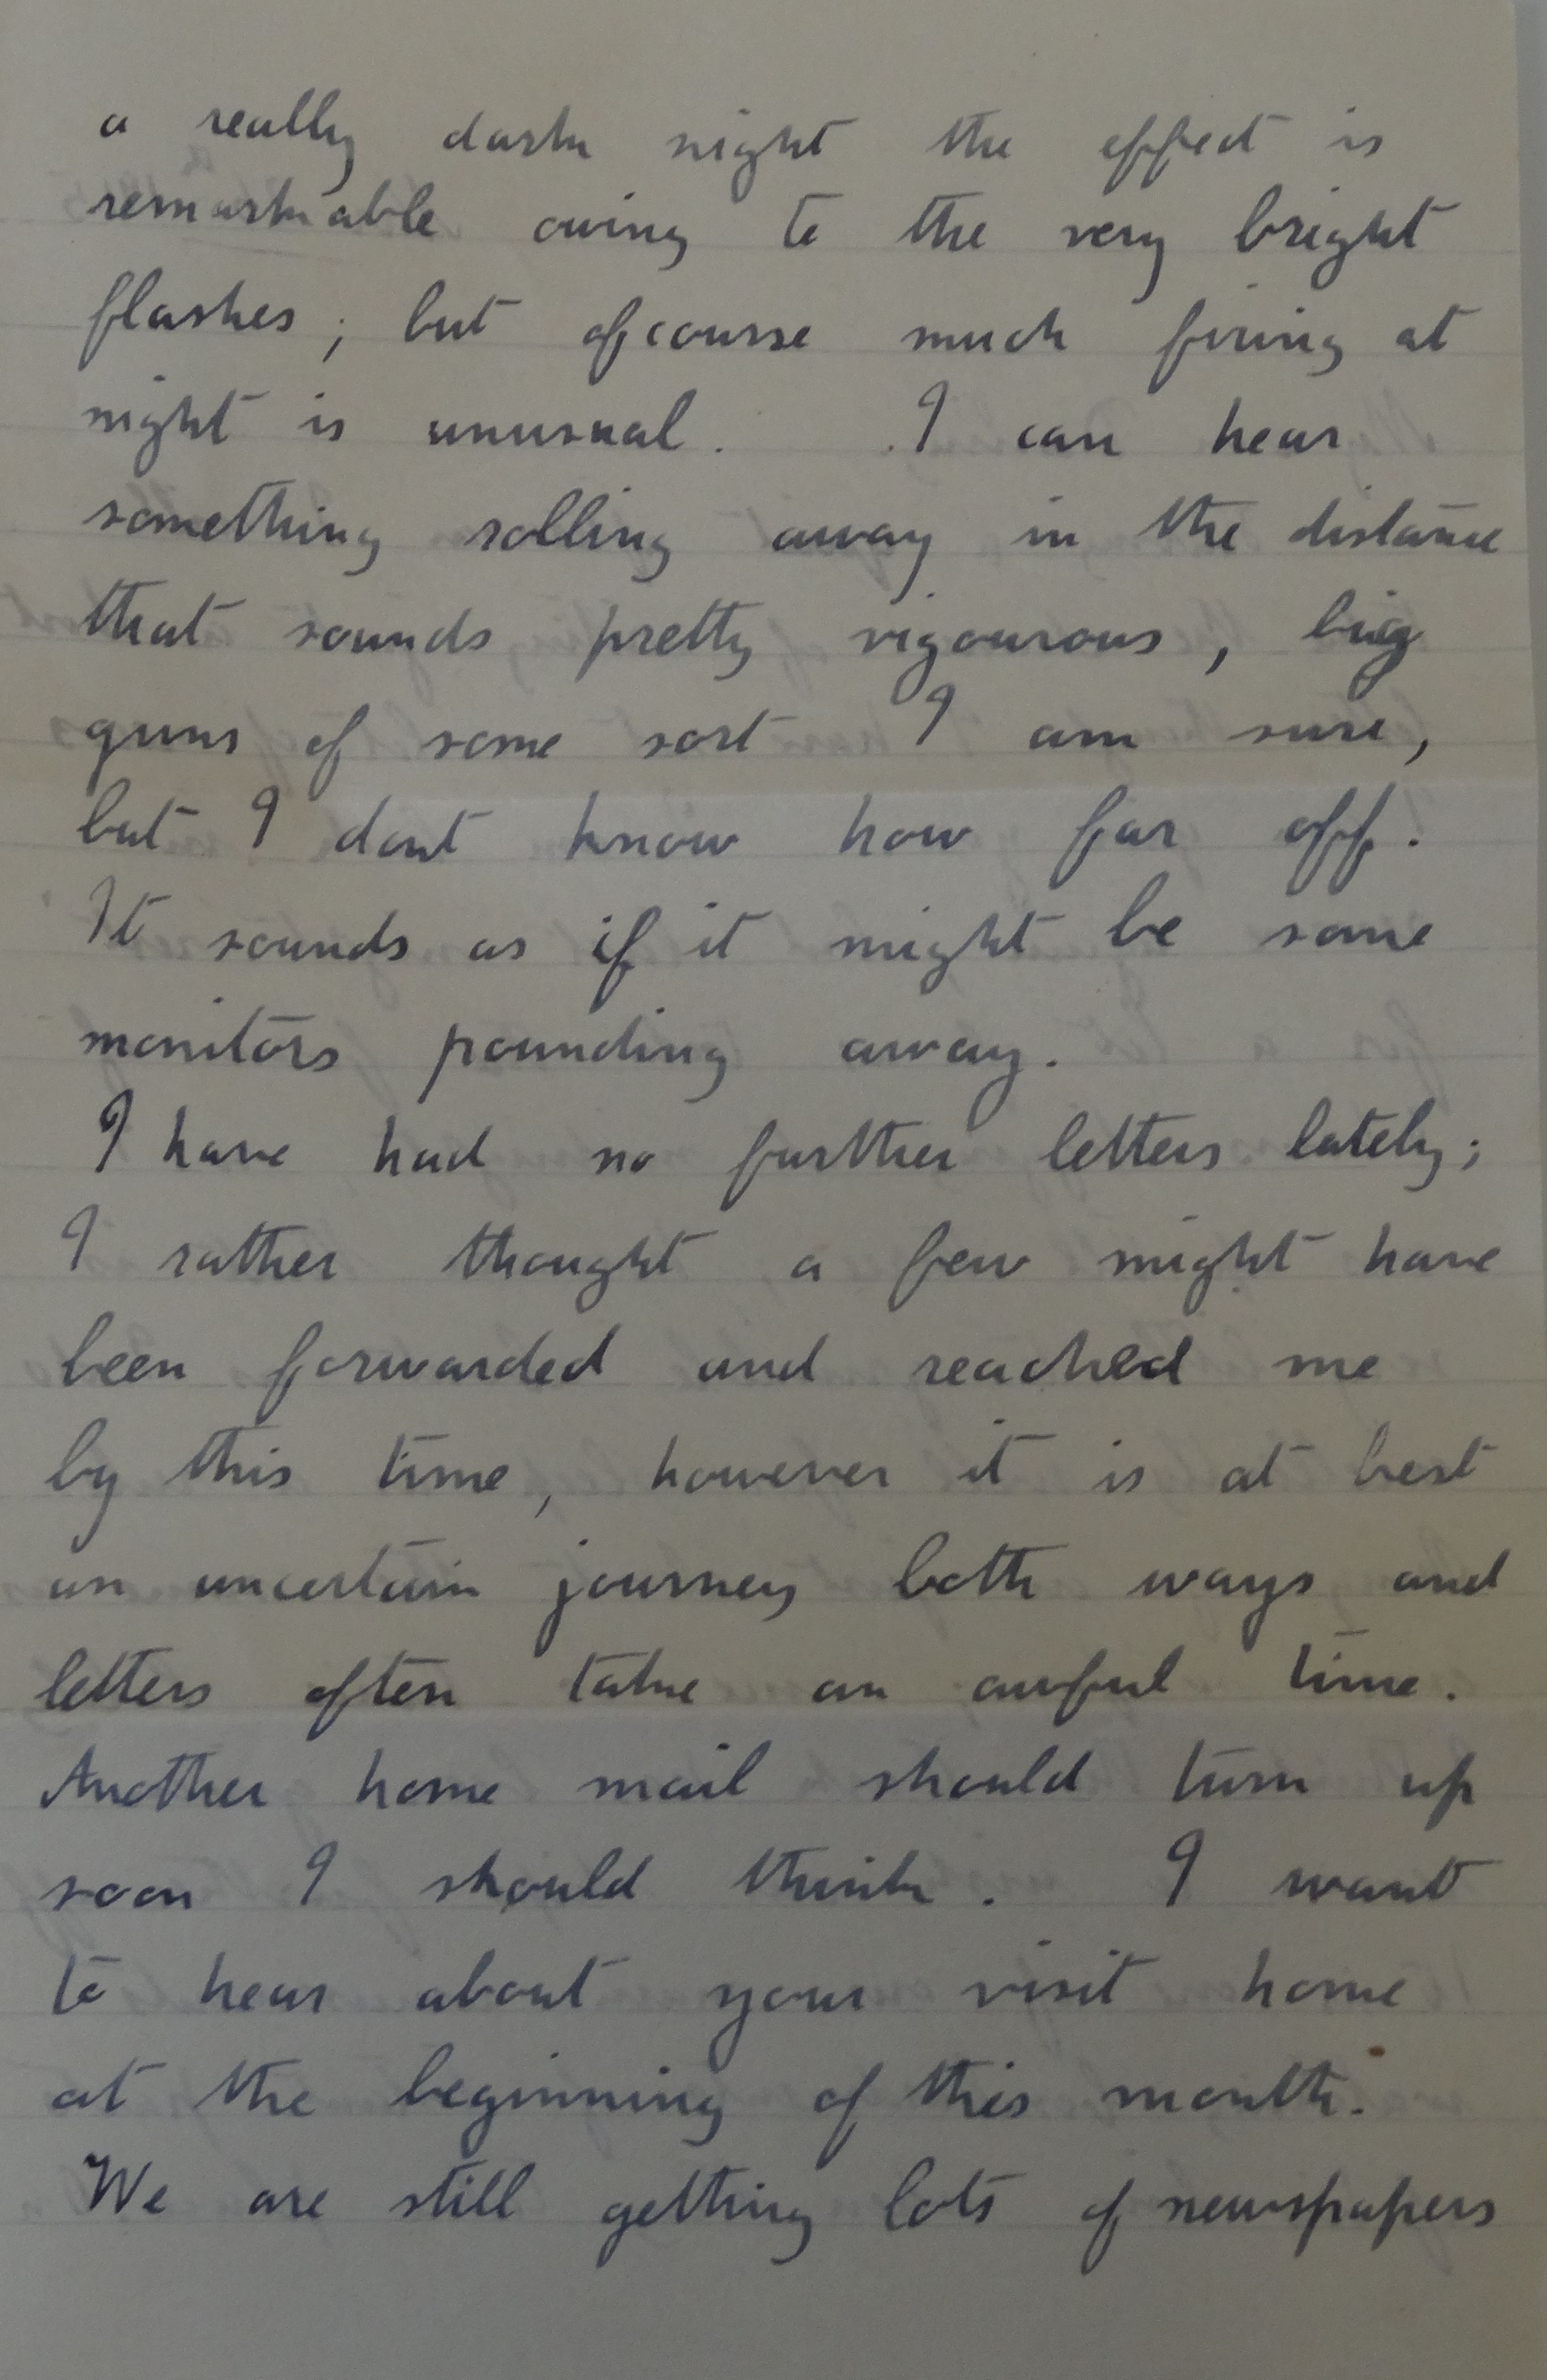 a really dark night the effect is
remarkable owing to the very bright
flashes; but ofcourse much firing at
night is unusual. I can hear
something rolling away in the distance
that sounds pretty vigourous, big
guns of some sort I am sure,
but I dont know how far off.
It sounds as if it might be some
monitors pounding away.
I have had no further letters lately;
I rather thought a few might have
been forwarded and reached me
by this time, however it is at best
an uncertain journey both ways and
letters often take an awful time.
Another home mail should turn up
soon I should think. I want
to hear about your visit home
at the beginning of this month.
We are still getting lots of newspapers